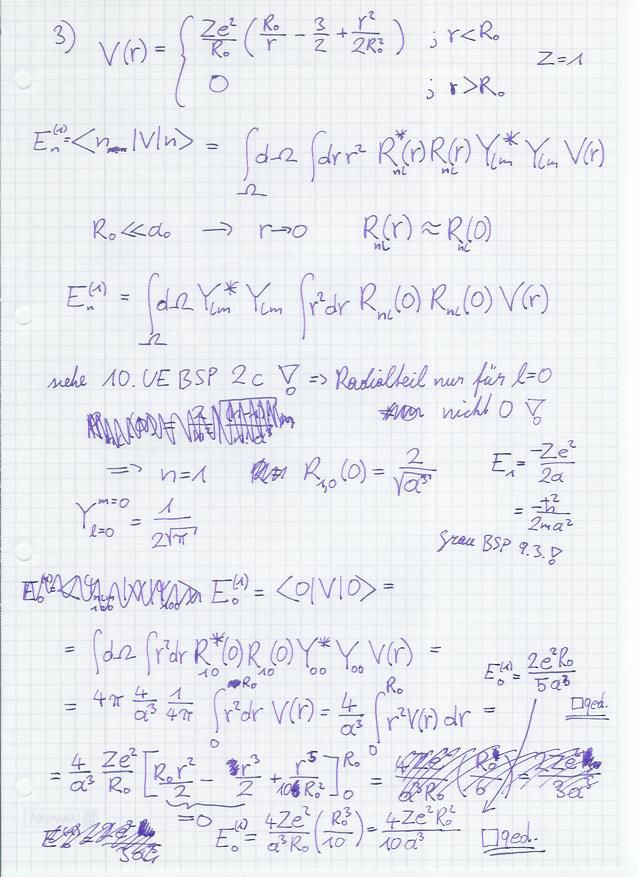 3) V(r) = { Ze²/R₀ ( R₀/r − 3/2 + r²/2R₀² ) ; r<R₀
0 ; r>R₀
Z=1
Eₙ⁽¹⁾ = <n|V|n> = ∫_Ω dΩ ∫ dr r² R*ₙₗ(r) Rₙₗ(r) Y*ₗₘ Yₗₘ V(r)
R₀ ≪ a₀ → r→0 Rₙₗ(r) ≈ Rₙₗ(0)
Eₙ⁽¹⁾ = ∫_Ω dΩ Y*ₗₘ Yₗₘ ∫ r² dr Rₙₗ(0) Rₙₗ(0) V(r)
siehe 10. UE BSP 2c ! => Radialteil nur für l=0
nicht 0 !
=> n=1 R₁,₀(0) = 2/√a³
E₁ = −Ze²/2a
= −ħ²/2ma²
Y_{l=0}^{m=0} = 1/2√π
BSP 9.3. !
E₀⁽¹⁾ = <0|V|0> =
= ∫ dΩ ∫ r² dr R*₁₀(0) R₁₀(0) Y*₀₀ Y₀₀ V(r) =
E₀⁽¹⁾ = 2e²R₀/5a³
= 4π 4/a³ 1/4π ∫₀^R₀ r² dr V(r) = 4/a³ ∫₀^R₀ r² V(r) dr =
□ qed.
= 4/a³ Ze²/R₀ [ R₀r²/2 − r³/2 + r⁵/10R₀² ]₀^R₀ =
=0 E₀⁽¹⁾ = 4Ze²/a³R₀ (R₀³/10) = 4Ze²R₀²/10a³
□ qed.